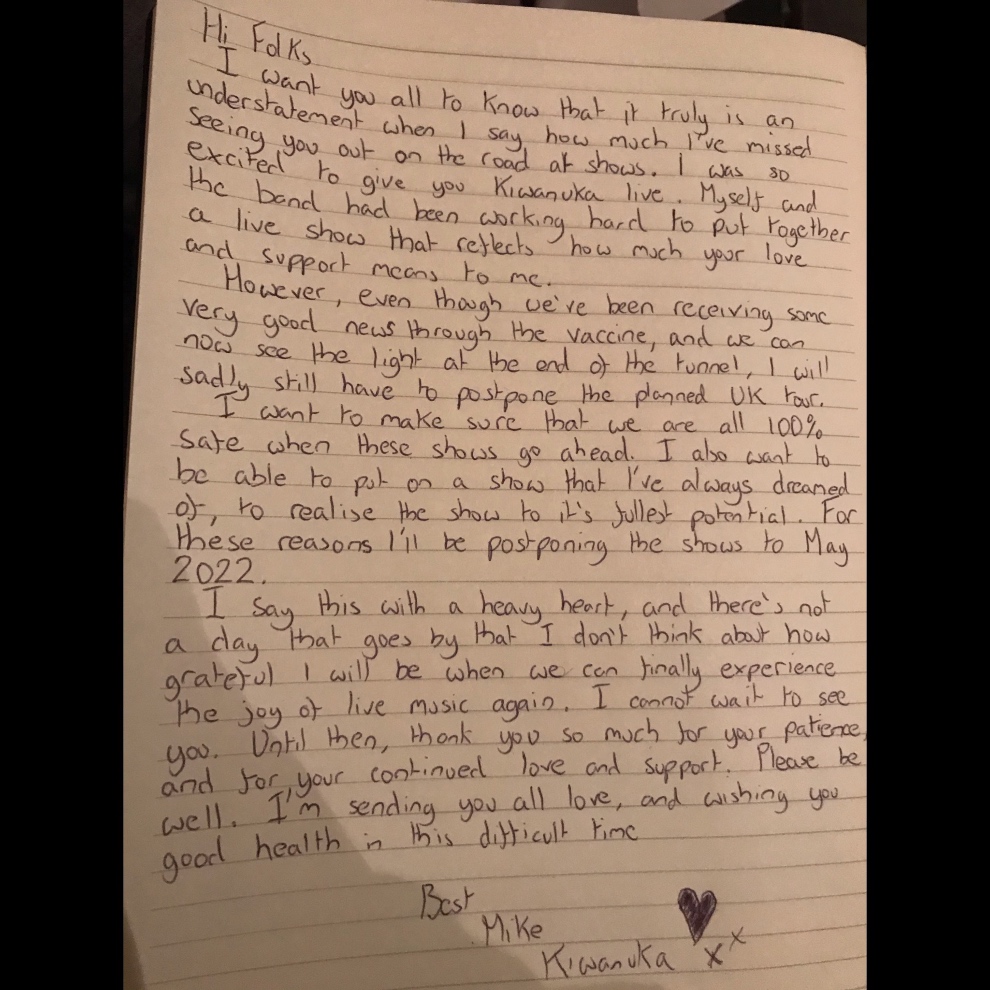 Hi Folks
I want you all to know that it truly is an
understatement when I say, how much I've missed
seeing you out on the road at shows. I was so
excited to give you Kiwanuka live. Myself and
the band had been working hard to put together
a live show that reflects how much your love
and support means to me.
However, even though we've been receiving some
very good news through the vaccine, and we can
now see the light at the end of the tunnel, I will
sadly still have to postpone the planned UK tour.
I want to make sure that we are all 100%
safe when these shows go ahead. I also want to
be able to put on a show that I've always dreamed
of, to realise the show to it's fullest potential. For
these reasons I'll be postponing the shows to May
2022.
I say this with a heavy heart, and there's not
a day that goes by that I don't think about how
grateful I will be when we can finally experience
the joy of live music again. I cannot wait to see
you. Until then, thank you so much for your patience,
and for, your continued love and support. Please be
well. I'm sending you all love, and wishing you
good health in this difficult time
Best
Mike
Kiwanuka x x